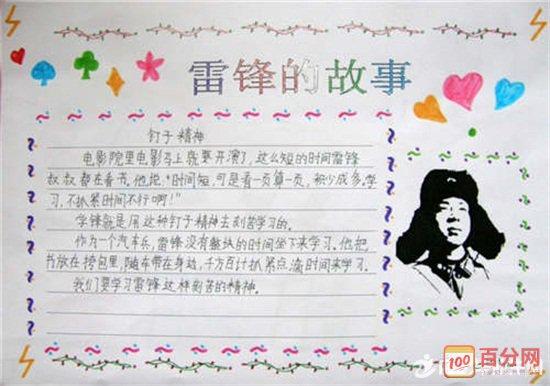 雷锋的故事
钉子精神
电影院里电影马上就要开演了,这么短的时间雷锋
叔叔都在看书。他说:“时间短,可是看一页算一页,积少成多,学
习,不抓紧时间不行啊!”
学锋就是用这种钉子精神去刻苦学习的。
作为一个汽车兵,雷锋没有整块的时间坐下来学习。他把
书放在挎包里,随布带在身边,千方百计抓紧点滴时间来学习。
我们要学习雷锋这样刻苦的精神。
100
百分网